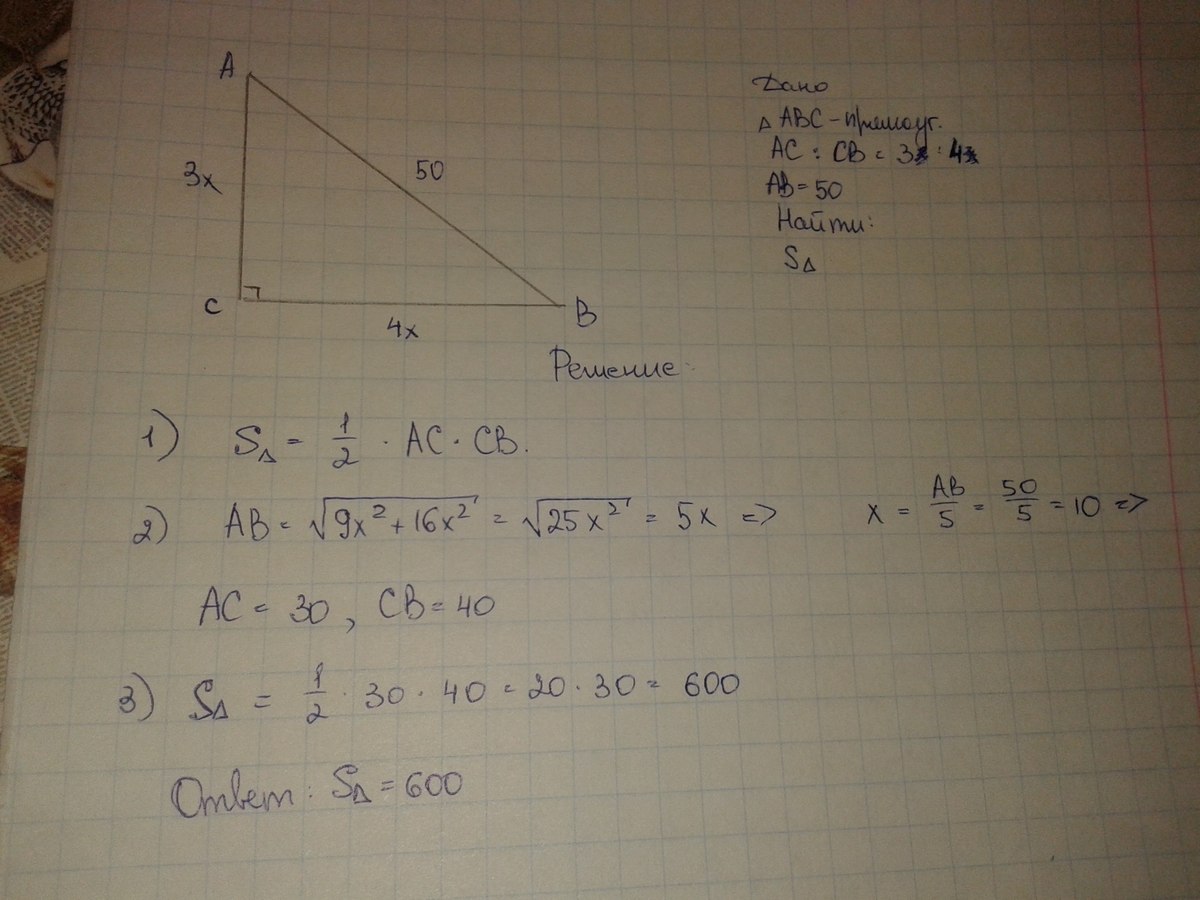 A
3x
50
C
4x
B
Дано
Δ ABC - прямоуг.
AC : CB = 3 : 4
AB = 50
Найти:
SΔ
Решение:
1) SΔ = 1/2 · AC · CB.
2) AB = √(9x² + 16x²) = √(25x²) = 5x => x = AB/5 = 50/5 = 10 =>
AC = 30, CB = 40
3) SΔ = 1/2 · 30 · 40 = 20 · 30 = 600
Ответ: SΔ = 600